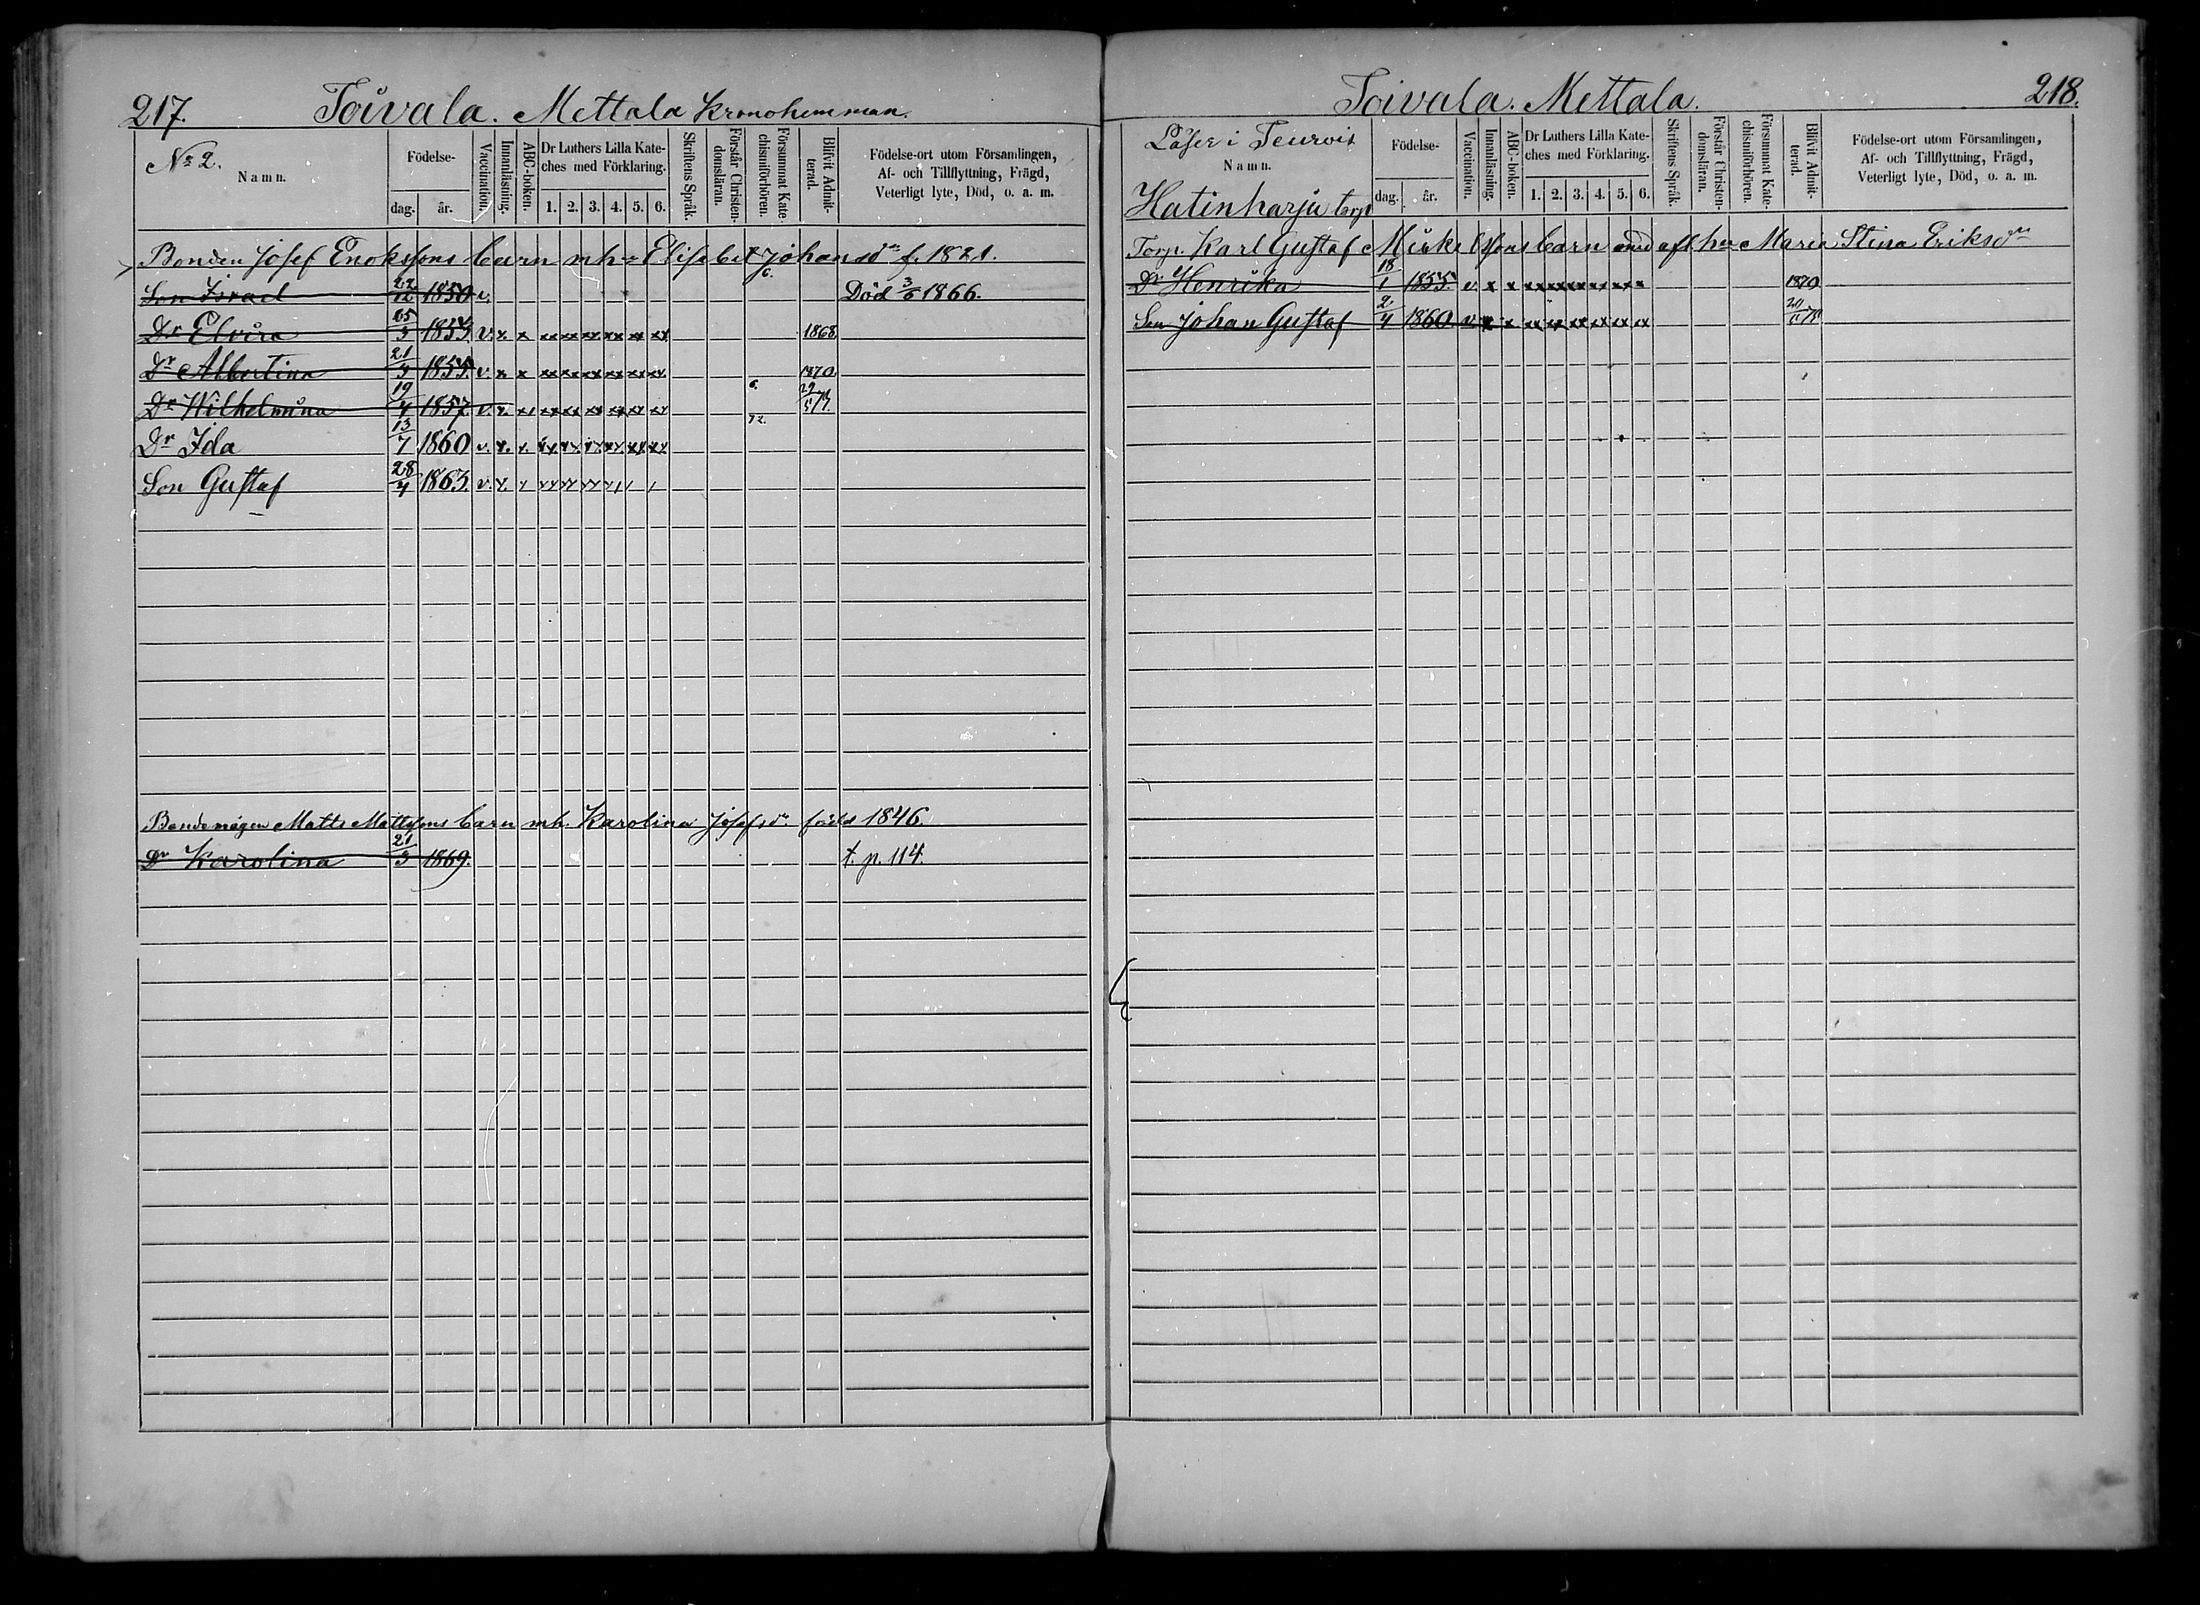 217. Toivala. Mettala Kronohemman.
No 2.
Namn.
Födelse-
dag. år.
Vaccination.
Innanläsning.
ABC-boken.
Dr Luthers Lilla Kate-
ches med Förklaring.
1. 2. 3. 4. 5. 6.
Skriftens Språk.
Förstår Christen-
domsläran.
Försummat Kate-
chismiförhören.
Blifvit Admit-
terad.
Födelse-ort utom Församlingen,
Af- och Tillflyttning, Frägd,
Veterligt lyte, Död, o. a. m.
Bonden Josef Enokssons barn mh Elisabet Johansdr f. 1821.
6.
Son Israel 22/12 1850 v. Död 3/6 1866.
Dr Elvira 15/3 1853 v. x. x xx xx xx xx xx xx 1868
Dr Albertina 21/3 1855. v. x. x xx xx xx xx xx xx 1870
Dr Wilhelmina 19/4 1857. v. x. x xx xx xx xx xx xx 6. 29/5 74.
72.
Dr Ida 13/7 1860 v. x. x. xx xx xx xx xx xx
Son Gustaf 28/4 1863. v. x.
Bondemågen Matts Mattssons barn mh. Karolina Josefsdr. född 1846.
Dr Karolina 21/3 1869. t. p. 114.
Toivala. Mettala. 218.
Läser i Teurois
Namn.
Hatinharju torp
Födelse-
dag. år.
Vaccination.
Innanläsning.
ABC-boken.
Dr Luthers Lilla Kate-
ches med Förklaring.
1. 2. 3. 4. 5. 6.
Skriftens Språk.
Förstår Christen-
domsläran.
Försummat Kate-
chismiförhören.
Blifvit Admit-
terad.
Födelse-ort utom Församlingen,
Af- och Tillflyttning, Frägd,
Veterligt lyte, Död, o. a. m.
Torp. Karl Gustaf Mickelssons barn med afl. hu Maria Stina Eriksdr
Dr Henrika 18/1 1855. v. x x xx xx xx xx xx xx 1870
Son Johan Gustaf 2/4 1860 v. x x xx xx xx xx xx xx